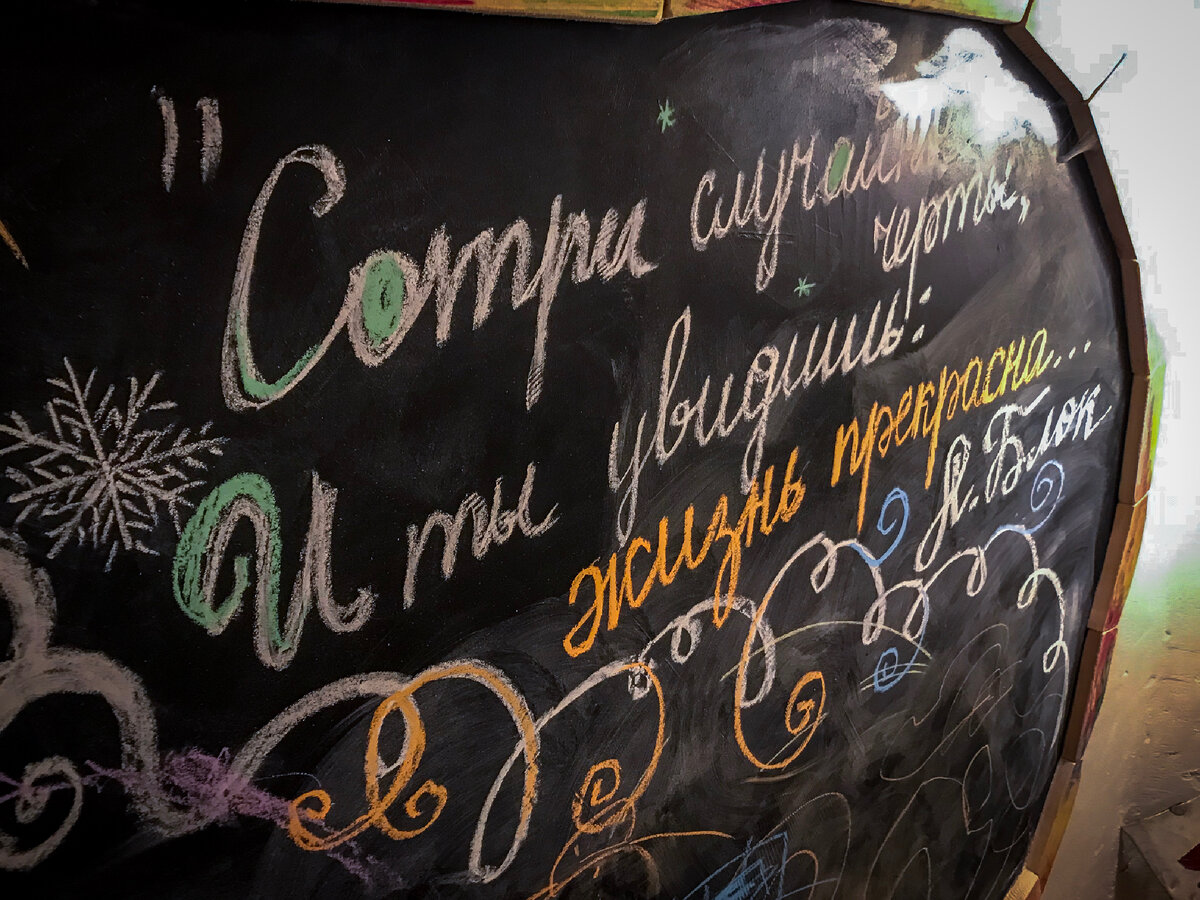 "Сотри случайные
черты,
И ты увидишь:
жизнь прекрасна...
А. Блок